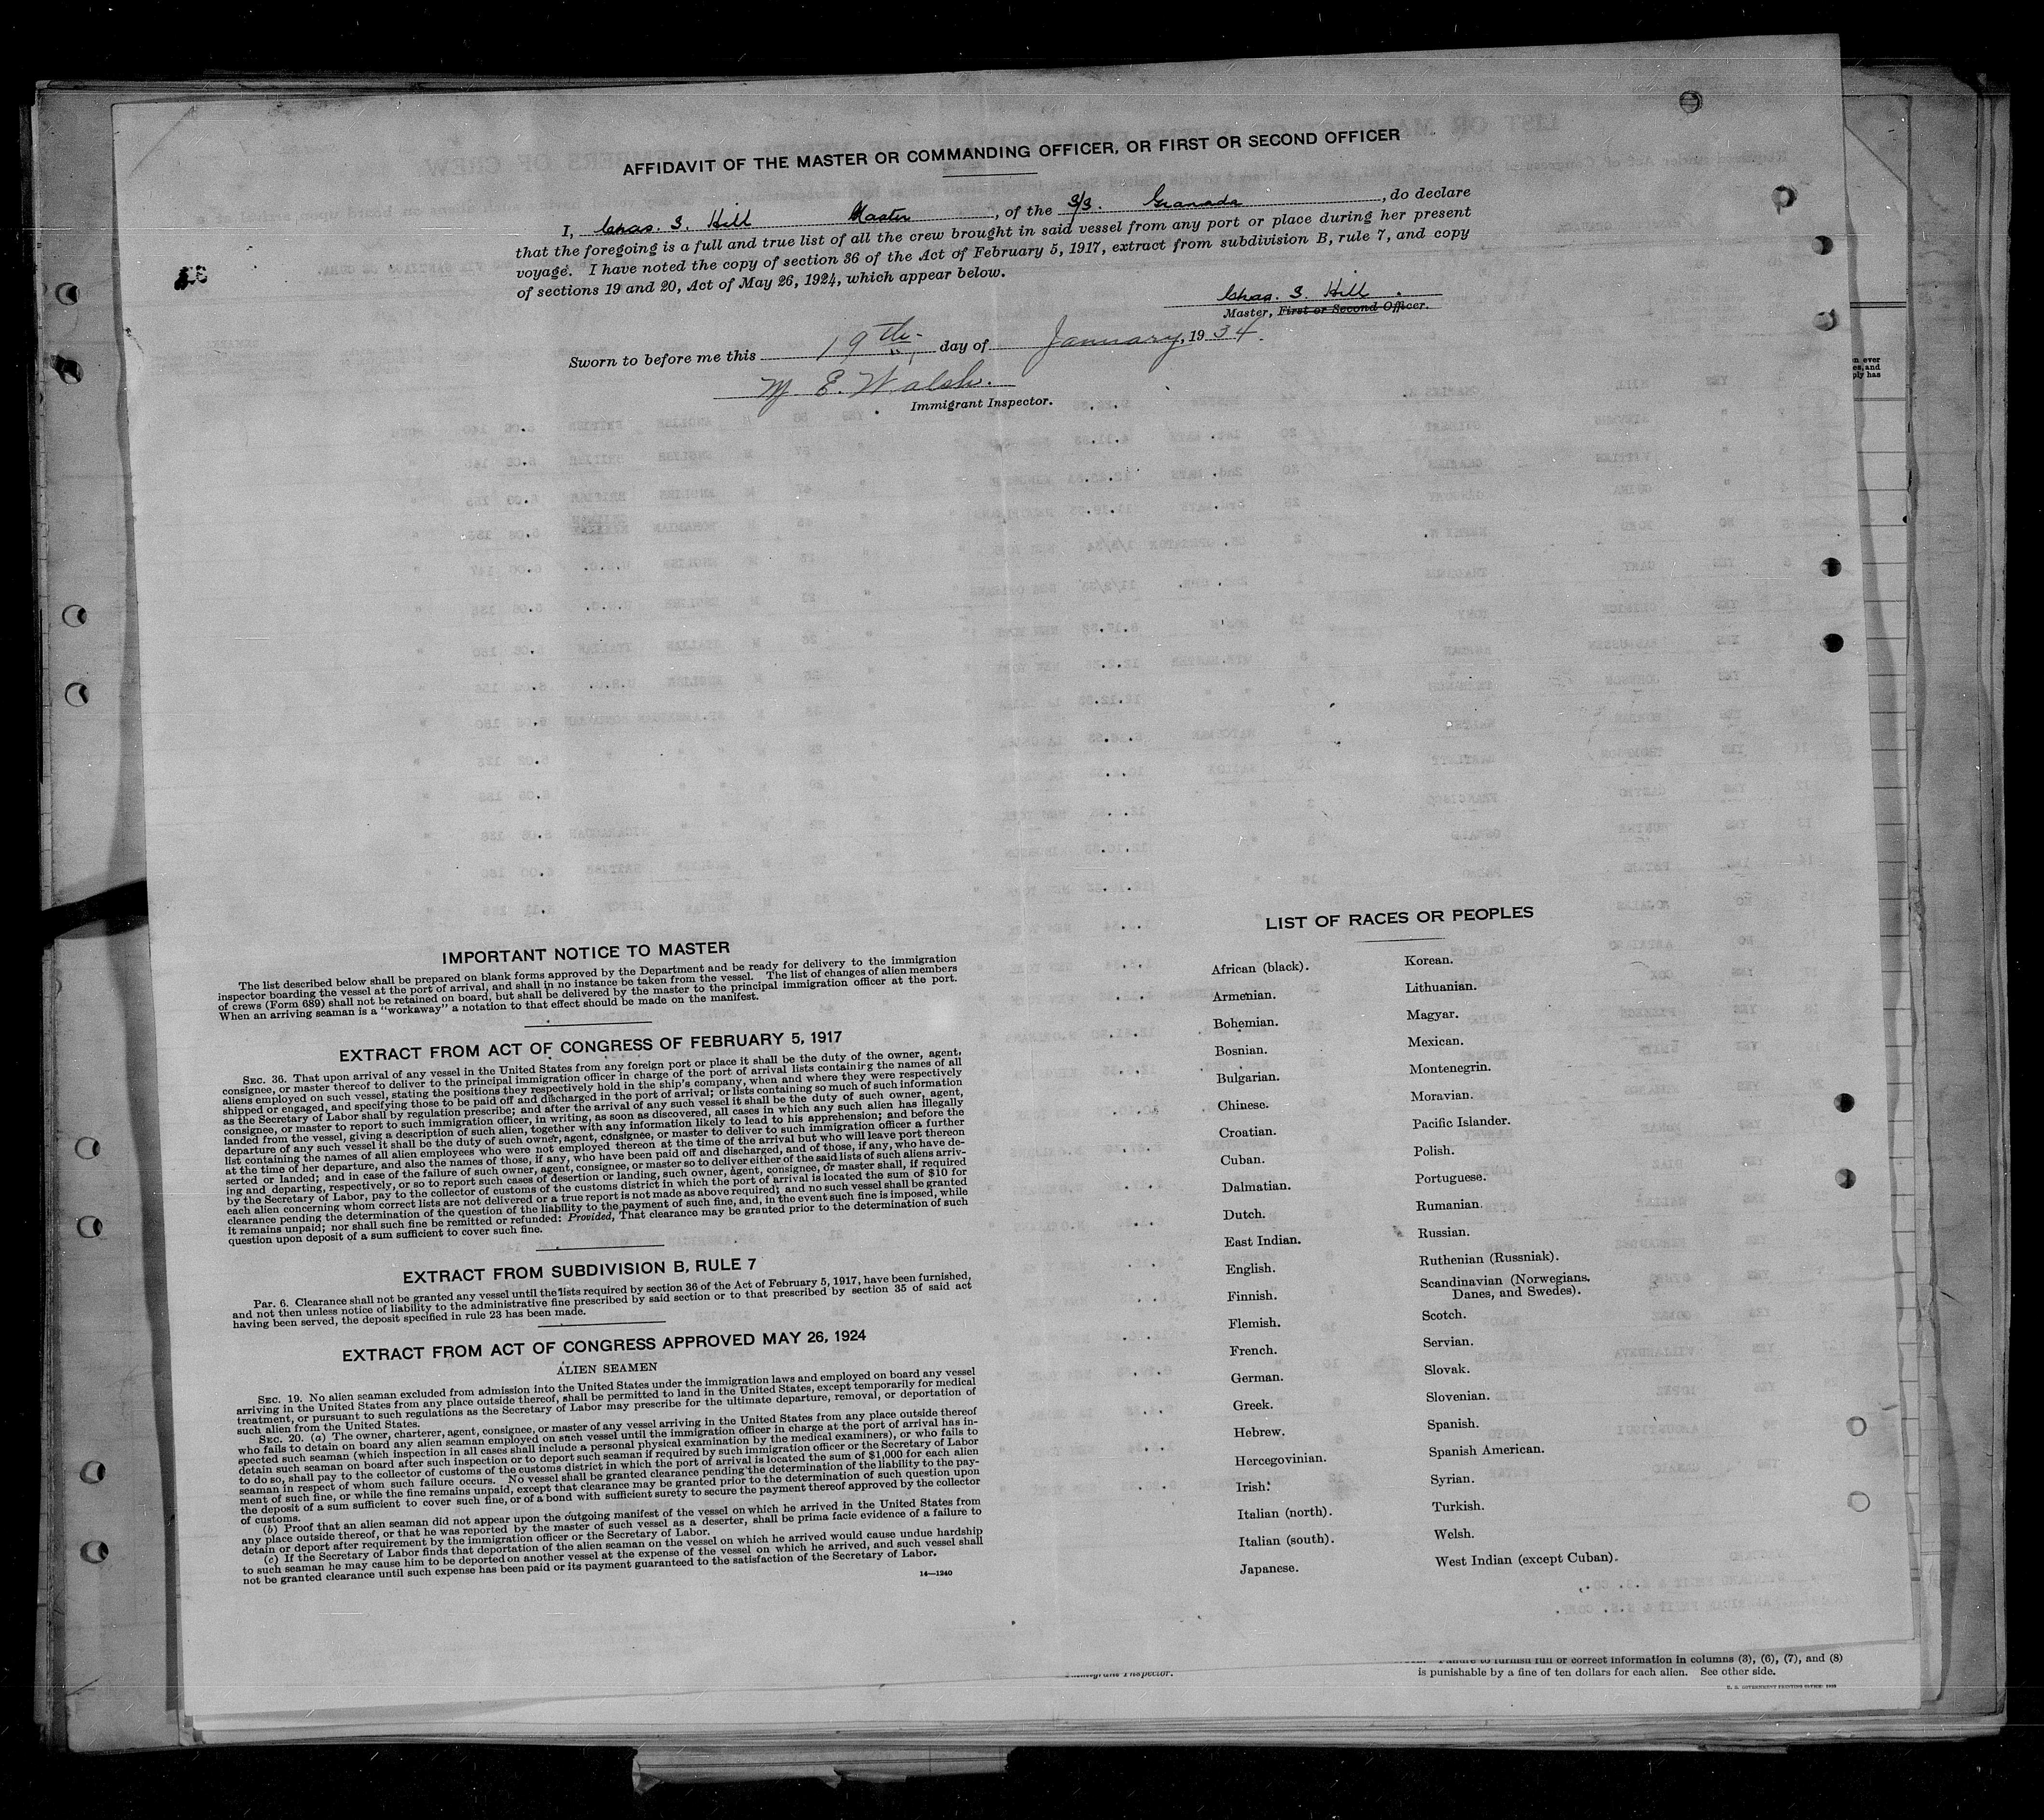 AFFIDAVIT OF THE MASTER OR COMMANDING OFFICER, OR FIRST OR SECOND OFFICER
I, Chas. S. Hill Master, of the S/S. Granada, do declare
that the foregoing is a full and true list of all the crew brought in said vessel from any port or place during her present
voyage. I have noted the copy of section 36 of the Act of February 5, 1917, extract from subdivision B, rule 7, and copy
of sections 19 and 20, Act of May 26, 1924, which appear below.
Chas. S. Hill.
Master, First or Second Officer.
Sworn to before me this 19th day of January, 1934.
M. E. Walsh.
Immigrant Inspector.
IMPORTANT NOTICE TO MASTER
The list described below shall be prepared on blank forms approved by the Department and be ready for delivery to the immigration
inspector boarding the vessel at the port of arrival, and shall in no instance be taken from the vessel. The list of changes of alien members
of crews (Form 689) shall not be retained on board, but shall be delivered by the master to the principal immigration officer at the port.
When an arriving seaman is a "workaway" a notation to that effect should be made on the manifest.
EXTRACT FROM ACT OF CONGRESS OF FEBRUARY 5, 1917
SEC. 36. That upon arrival of any vessel in the United States from any foreign port or place it shall be the duty of the owner, agent,
consignee, or master thereof to deliver to the principal immigration officer in charge of the port of arrival lists containing the names of all
aliens employed on such vessel, stating the positions they respectively hold in the ship's company, when and where they were respectively
shipped or engaged, and specifying those to be paid off and discharged in the port of arrival; or lists containing so much of such information
as the Secretary of Labor shall by regulation prescribe; and after the arrival of any such vessel it shall be the duty of such owner, agent,
consignee, or master to report to such immigration officer, in writing, as soon as discovered, all cases in which any such alien has illegally
landed from the vessel, giving a description of such alien, together with any information likely to lead to his apprehension; and before the
departure of any such vessel it shall be the duty of such owner, agent, consignee, or master to deliver to such immigration officer a further
list containing the names of all alien employees who were not employed thereon at the time of the arrival but who will leave port thereon
at the time of her departure, and also the names of those, if any, who have been paid off and discharged, and of those, if any, who have de-
serted or landed; and in case of the failure of such owner, agent, consignee, or master so to deliver either of the said lists of such aliens arriv-
ing and departing, respectively, or so to report such cases of desertion or landing, such owner, agent, consignee, or master shall, if required
by the Secretary of Labor, pay to the collector of customs of the customs district in which the port of arrival is located the sum of $10 for
each alien concerning whom correct lists are not delivered or a true report is not made as above required; and no such vessel shall be granted
clearance pending the determination of the question of the liability to the payment of such fine, and, in the event such fine is imposed, while
it remains unpaid; nor shall such fine be remitted or refunded: Provided, That clearance may be granted prior to the determination of such
question upon deposit of a sum sufficient to cover such fine.
EXTRACT FROM SUBDIVISION B, RULE 7
Par. 6. Clearance shall not be granted any vessel until the lists required by section 36 of the Act of February 5, 1917, have been furnished,
and not then unless notice of liability to the administrative fine prescribed by said section or to that prescribed by section 35 of said act
having been served, the deposit specified in rule 23 has been made.
EXTRACT FROM ACT OF CONGRESS APPROVED MAY 26, 1924
ALIEN SEAMEN
SEC. 19. No alien seaman excluded from admission into the United States under the immigration laws and employed on board any vessel
arriving in the United States from any place outside thereof, shall be permitted to land in the United States, except temporarily for medical
treatment, or pursuant to such regulations as the Secretary of Labor may prescribe for the ultimate departure, removal, or deportation of
such alien from the United States.
SEC. 20. (a) The owner, charterer, agent, consignee, or master of any vessel arriving in the United States from any place outside thereof
who fails to detain on board any alien seaman employed on such vessel until the immigration officer in charge at the port of arrival has in-
spected such seaman (which inspection in all cases shall include a personal physical examination by the medical examiners), or who fails to
detain such seaman on board after such inspection or to deport such seaman if required by such immigration officer or the Secretary of Labor
to do so, shall pay to the collector of customs of the customs district in which the port of arrival is located the sum of $1,000 for each alien
seaman in respect of whom such failure occurs. No vessel shall be granted clearance pending the determination of the liability to the pay-
ment of such fine, or while the fine remains unpaid, except that clearance may be granted prior to the determination of such question upon
the deposit of a sum sufficient to cover such fine, or of a bond with sufficient surety to secure the payment thereof approved by the collector
of customs.
(b) Proof that an alien seaman did not appear upon the outgoing manifest of the vessel on which he arrived in the United States from
any place outside thereof, or that he was reported by the master of such vessel as a deserter, shall be prima facie evidence of a failure to
detain or deport after requirement by the immigration officer or the Secretary of Labor.
(c) If the Secretary of Labor finds that deportation of the alien seaman on the vessel on which he arrived would cause undue hardship
to such seaman he may cause him to be deported on another vessel at the expense of the vessel on which he arrived, and such vessel shall
not be granted clearance until such expense has been paid or its payment guaranteed to the satisfaction of the Secretary of Labor.
14—1240
LIST OF RACES OR PEOPLES
African (black).
Armenian.
Bohemian.
Bosnian.
Bulgarian.
Chinese.
Croatian.
Cuban.
Dalmatian.
Dutch.
East Indian.
English.
Finnish.
Flemish.
French.
German.
Greek.
Hebrew.
Hercegovinian.
Irish.
Italian (north).
Italian (south).
Japanese.
Korean.
Lithuanian.
Magyar.
Mexican.
Montenegrin.
Moravian.
Pacific Islander.
Polish.
Portuguese.
Rumanian.
Russian.
Ruthenian (Russniak).
Scandinavian (Norwegians,
Danes, and Swedes).
Scotch.
Servian.
Slovak.
Slovenian.
Spanish.
Spanish American.
Syrian.
Turkish.
Welsh.
West Indian (except Cuban).
Immigrant Inspector.
Failure to furnish full or correct information in columns (3), (6), (7), and (8)
is punishable by a fine of ten dollars for each alien. See other side.
U. S. GOVERNMENT PRINTING OFFICE